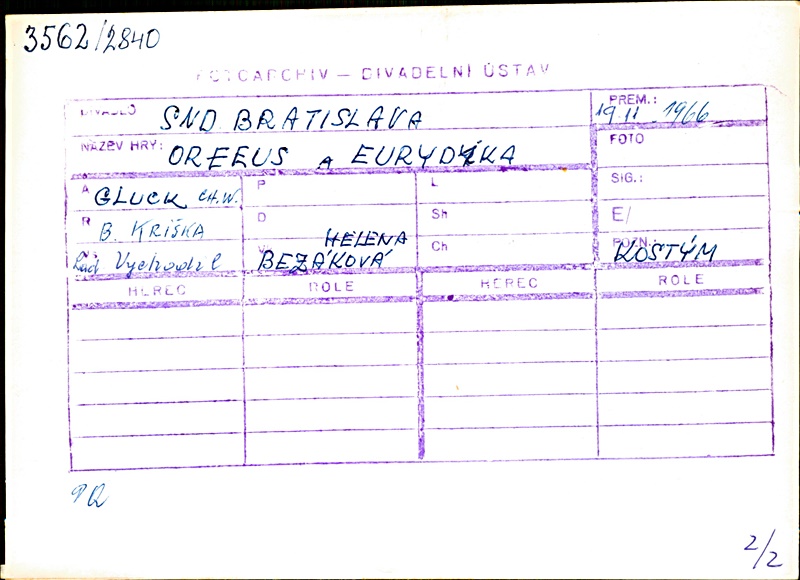 3562/2840
FOTOARCHIV — DIVADELNÍ ÚSTAV
DIVADLO SND BRATISLAVA PREM.: 19. 11. 1966
NÁZEV HRY: ORFEUS A EURYDIKA FOTO
A GLUCK CH.W. P L SIG.:
R B. KRIŠKA D Sh E/
Lad Vychodil V HELENA BEZÁKOVÁ Ch POZN.: KOSTÝM
HEREC ROLE HEREC ROLE
2/2